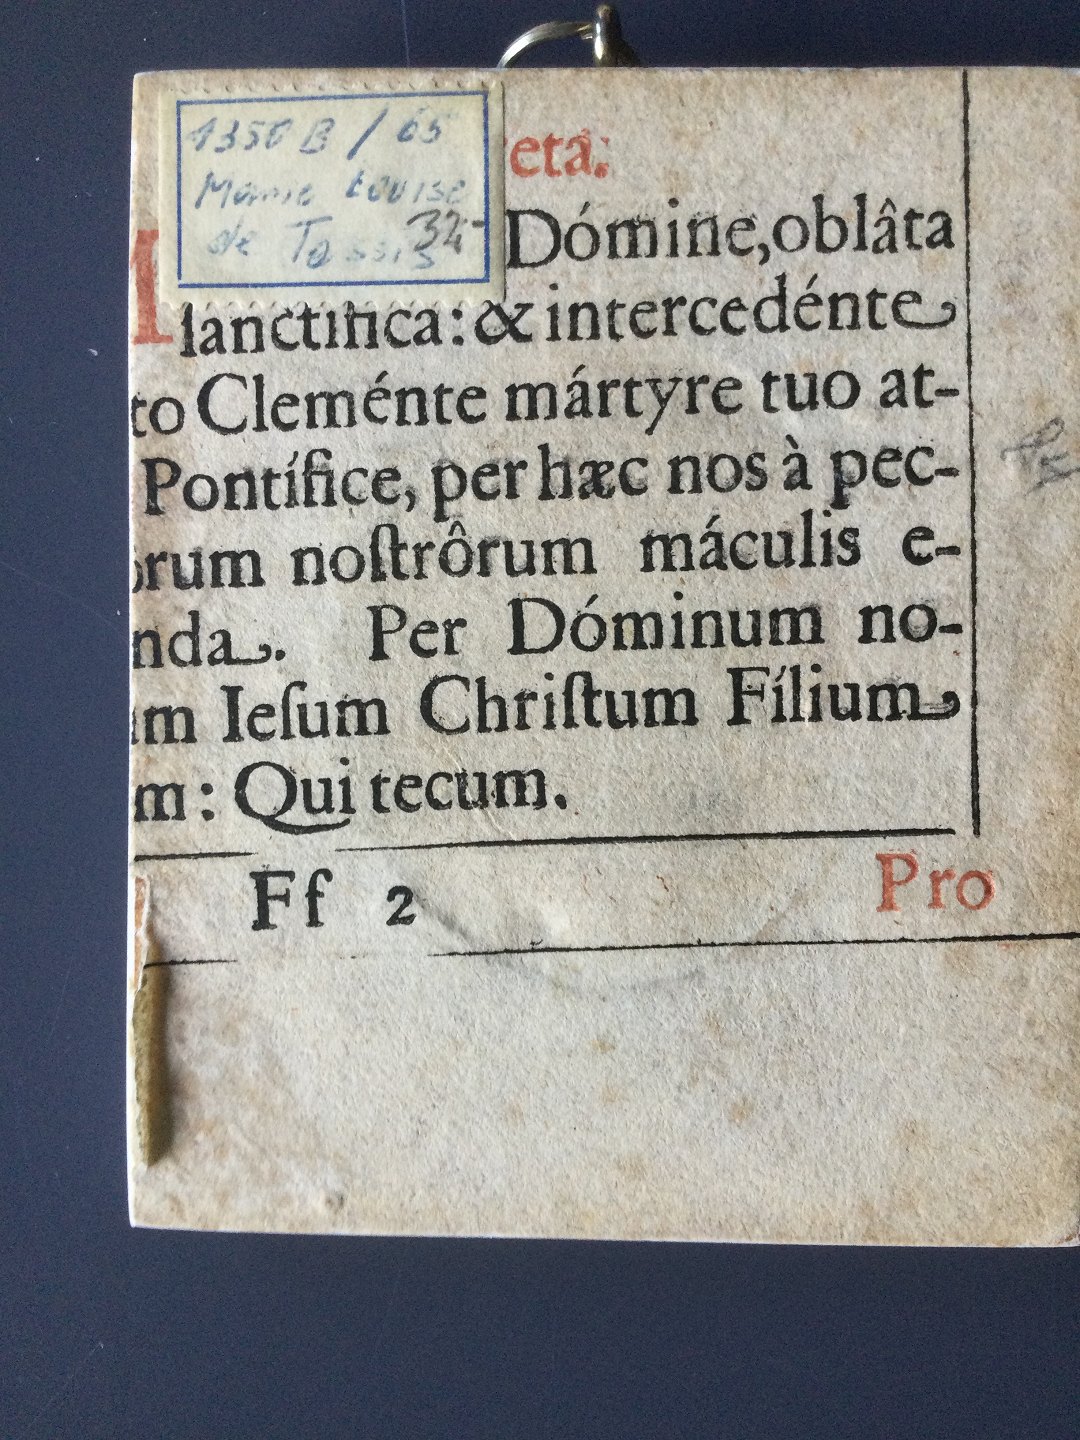 1350 B / 65
Marie Louise
de Tassis
32-
eta.
Dómine, oblâta
sanctifica: & intercedénte
to Cleménte mártyre tuo at-
Pontífice, per hæc nos à pec-
orum noſtrôrum máculis e-
nda. Per Dóminum no-
um Ieſum Chriſtum Fílium
m: Qui tecum.
Ff 2
Pro